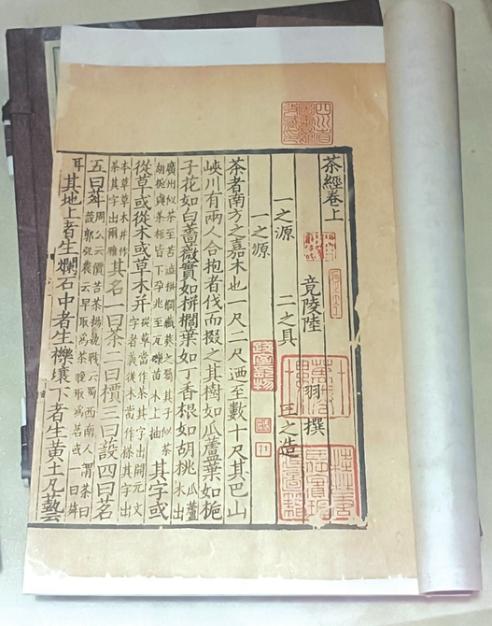 茶經卷上
竟陵陸羽撰
一之源 二之具 三之造
一之源
茶者南方之嘉木也一尺二尺迺至數十尺其巴山
峽川有兩人合抱者伐而掇之其樹如瓜蘆葉如梔
子花如白薔薇實如栟櫚葉如丁香根如胡桃瓜蘆木出
廣州似茶至苦澁栟櫚蒲葵之屬其子似茶胡桃與茶根皆下孕兆至瓦礫苗木上抽其字或
從草或從木或草木并從草當作茶其字出開元文字音義從木當作㮈其字出
本草草木并作荼其字出爾雅其名一曰茶二曰檟三曰蔎四曰茗
五曰荈周公云檟苦荼揚執戟云蜀西南人謂茶曰蔎郭弘農云早取為茶晚取為茗或一曰荈
耳其地上者生爛石中者生櫟壤下者生黃土凡藝